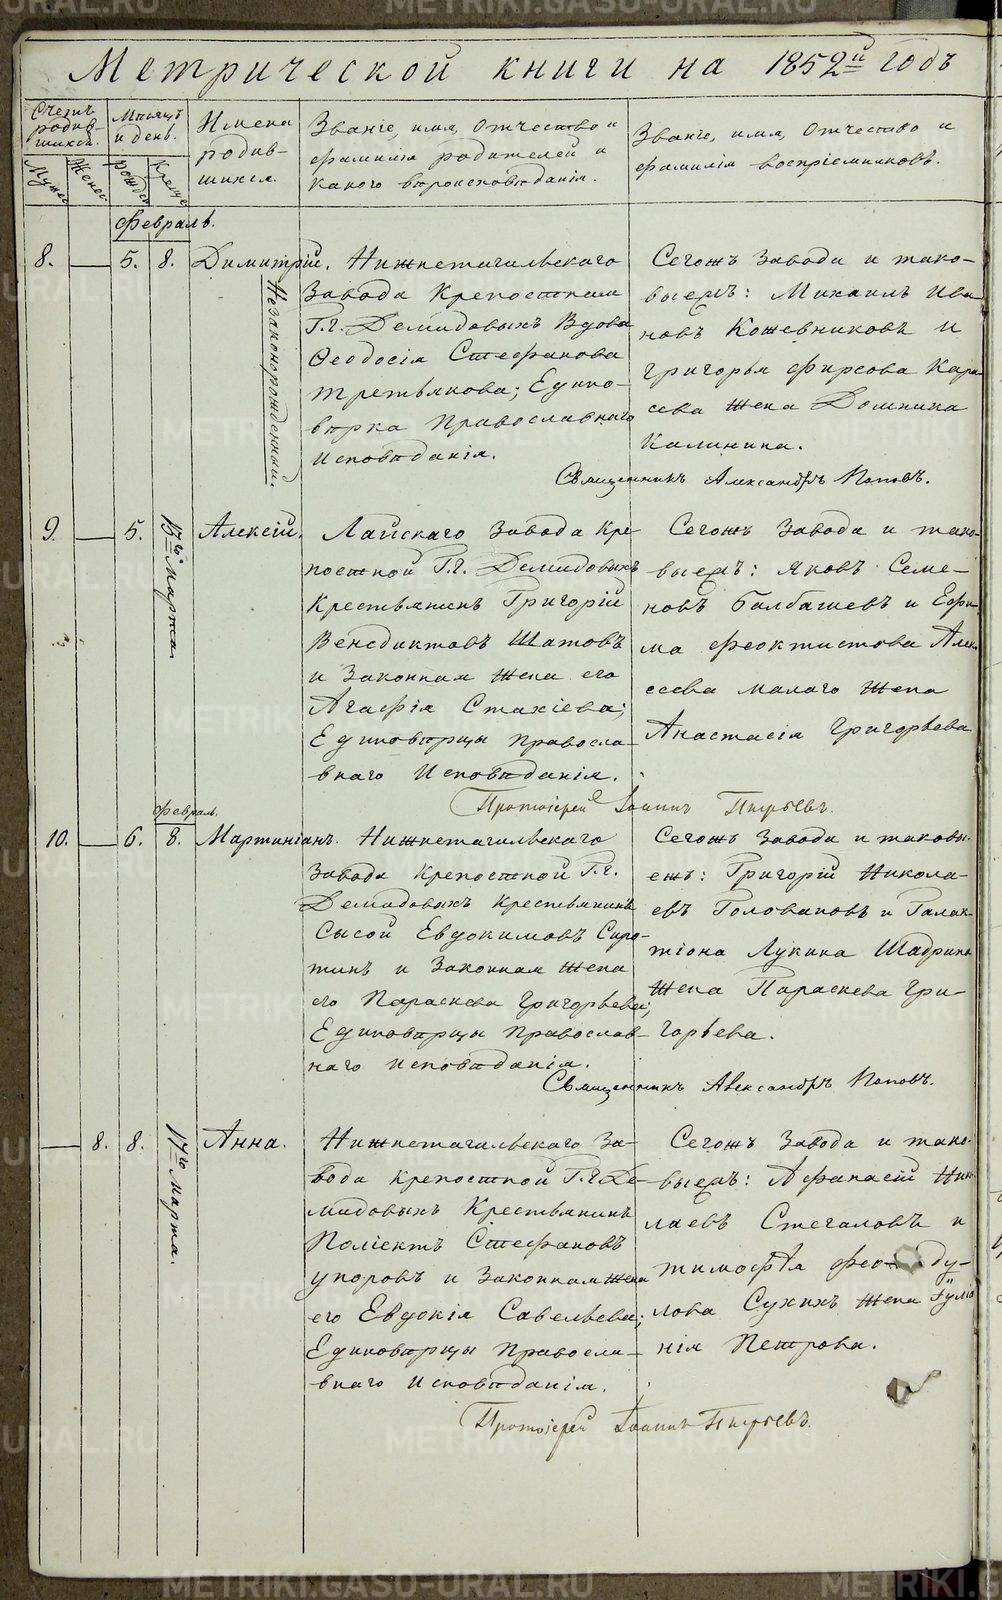 Метрической книги на 1852й годъ
Счетъ родив-шихся.
Мужес
Женес
Мѣсяцъ и день.
Рожде
Креще
Имена родив-шихся.
Званіе, имя, отчество и
фамилія родителей и
какого вѣроисповѣданія.
Званіе, имя, отчество и
фамилія воспріемниковъ.
Февраль.
8. — 5. 8. Димитрій.
Незаконорожденный.
Нижнетагильскаго
Завода Крепостная
Г.г. Демидовыхъ Вдова
Ѳеодосія Стефанова
Третьякова; Едино-
вѣрка Православнаго
Исповѣданія.
Сегожъ Завода и тако-
выежъ: Михаилъ Ива-
новъ Кожевниковъ и
Григорья Фирсова Кара-
сева жена Домника
Калинина.
Священникъ Александръ Поповъ.
9. — 5. 13го Марта Алексій.
Лайскаго Завода Кре-
постной Г.г. Демидовыхъ
Крестьянинъ Григорій
Венедиктовъ Шатовъ
и Законная жена его
Агафія Стахіева;
Единовѣрцы Правосла-
внаго Исповѣданія.
Сегожъ Завода и тако-
выежъ: Яковъ Семе-
новъ Балбашевъ и Ефи-
ма Феоктистова Алек-
сеева малаго жена
Анастасія Григорьева
Протоіерей Іоаннъ Пырьевъ.
Февраль.
10. — 6. 8. Мартиніанъ.
Нижнетагильскаго
Завода Крепостной Г.г.
Демидовыхъ Крестьянинъ
Сысой Евдокимовъ Сиро-
тинъ и Законная жена
его Параскева Григорьева;
Единовѣрцы Православ-
наго Исповѣданія.
Сегожъ Завода и таковы-
ежъ: Григорій Никола-
евъ Головановъ и Галак-
тіона Лукина Шадрина
жена Параскева Гри-
горьева.
Священникъ Александръ Поповъ.
— 8. 8. 17го Марта. Анна.
Нижнетагильскаго За-
вода Крепостной Г.г. Де-
мидовыхъ Крестьянинъ
Поліектъ Стефановъ
Упоровъ и Законная жена
его Евдокія Савельева;
Единовѣрцы Правосла-
внаго Исповѣданія.
Сегожъ Завода и тако-
выежъ: Афанасій Ник-
лаевъ Стегаловъ и
Тимофѣя Фео ду-
лова Сухихъ жена Іуліа
нія Петрова.
Протоіерей Іоаннъ Пырьевъ.
METRIKI.GASO-URAL.RU